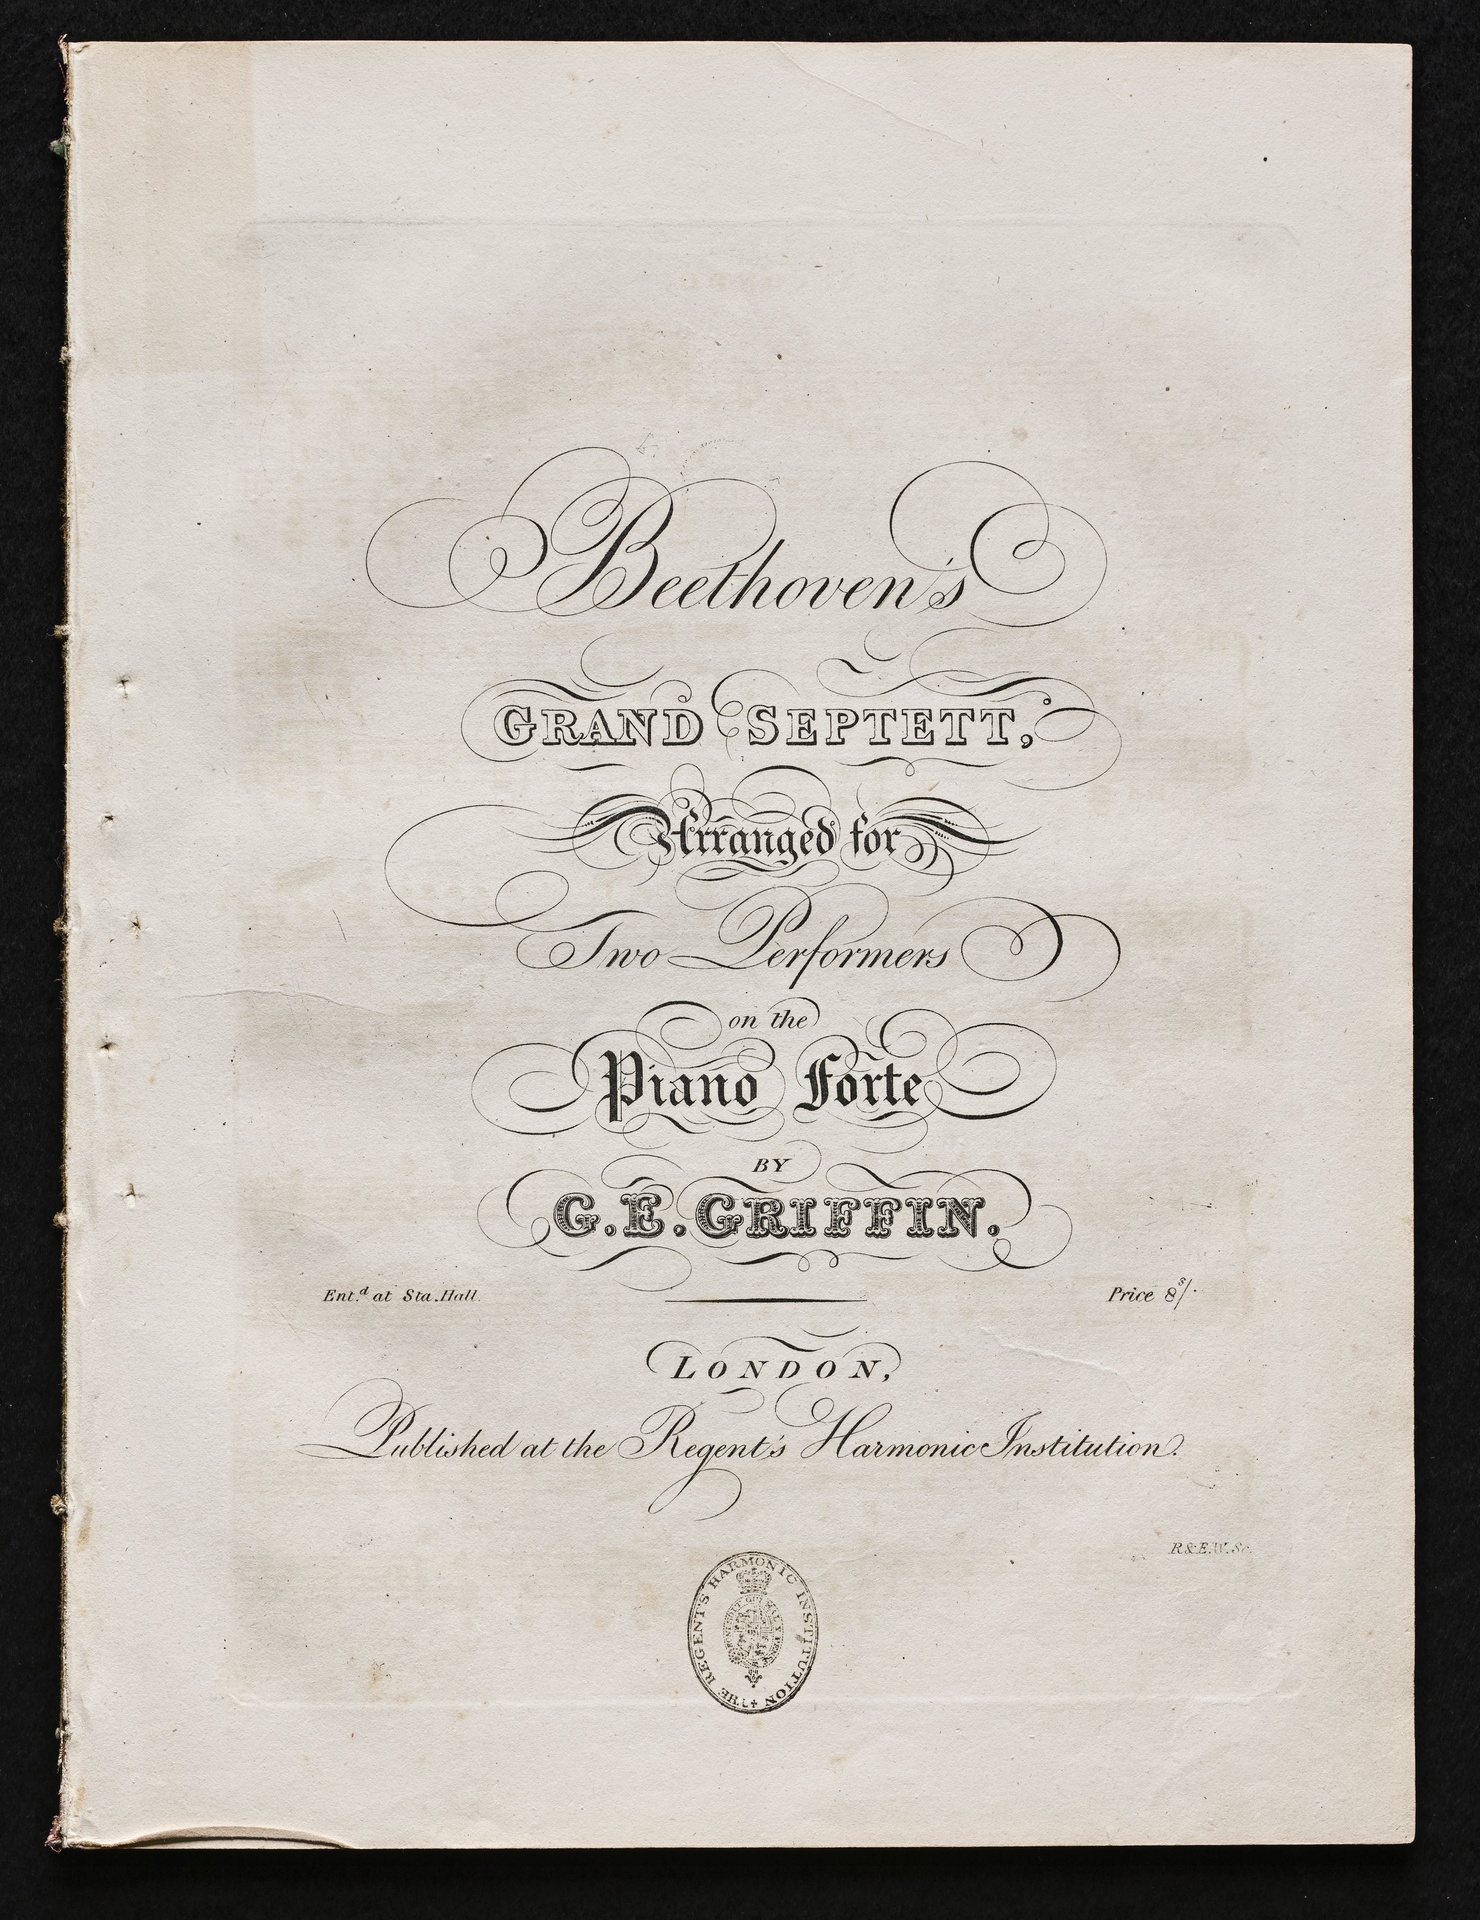 Beethoven's
GRAND SEPTETT,
Arranged for
Two Performers
on the
Piano Forte
BY
G.E.GRIFFIN.
Ent.d at Sta.Hall. Price 8s/.
LONDON,
Published at the Regent's Harmonic Institution.
R&E.W.Sc.
THE REGENT'S HARMONIC INSTITUTION